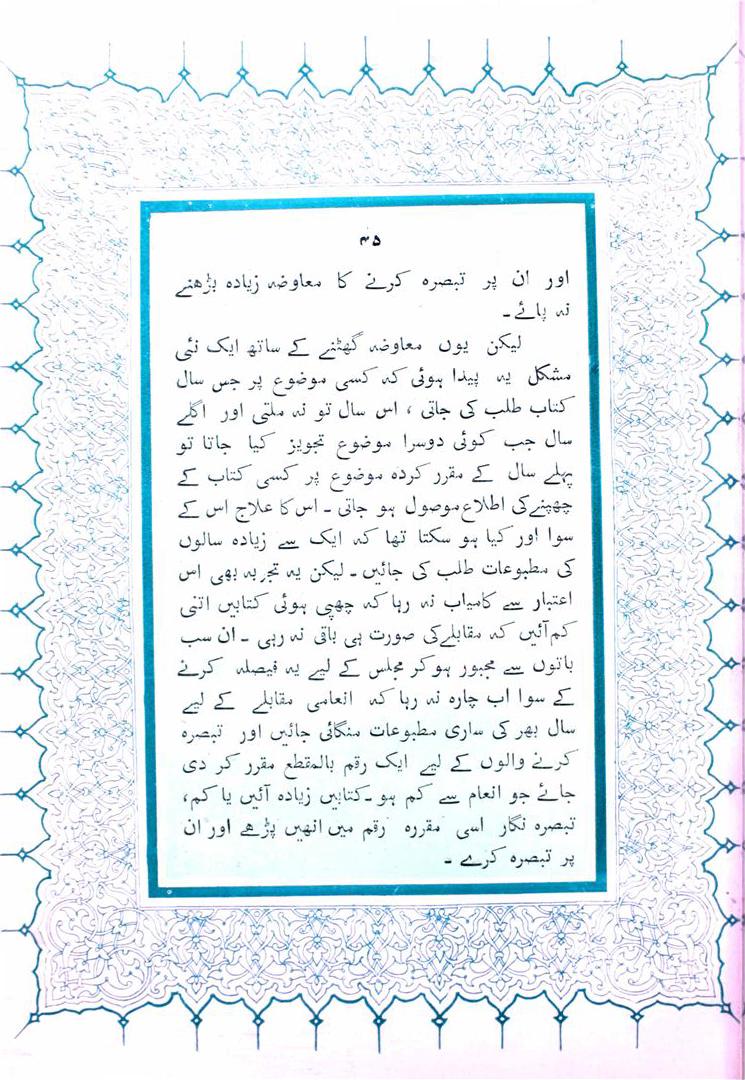 ۴۵
اور ان پر تبصرہ کرنے کا معاوضہ زیادہ بڑھنے
نہ پائے۔
لیکن یوں معاوضہ گھٹنے کے ساتھ ایک نئی
مشکل یہ پیدا ہوئی کہ کسی موضوع پر جس سال
کتاب طلب کی جاتی ، اس سال تو نہ ملتی اور اگلے
سال جب کوئی دوسرا موضوع تجویز کیا جاتا تو
پہلے سال کے مقرر کردہ موضوع پر کسی کتاب کے
چھپنے کی اطلاع موصول ہو جاتی ۔ اس کا علاج اس کے
سوا اور کیا ہو سکتا تھا کہ ایک سے زیادہ سالوں
کی مطبوعات طلب کی جائیں ۔ لیکن یہ تجربہ بھی اس
اعتبار سے کامیاب نہ رہا کہ چھپی ہوئی کتابیں اتنی
کم آئیں کہ مقابلے کی صورت ہی باقی نہ رہی ۔ ان سب
باتوں سے مجبور ہو کر مجلس کے لیے یہ فیصلہ کرنے
کے سوا اب چارہ نہ رہا کہ انعامی مقابلے کے لیے
سال بھر کی ساری مطبوعات منگائی جائیں اور تبصرہ
کرنے والوں کے لیے ایک رقم بالمقطع مقرر کر دی
جائے جو انعام سے کم ہو ۔ کتابیں زیادہ آئیں یا کم،
تبصرہ نگار اسی مقررہ رقم میں انھیں پڑھے اور ان
پر تبصرہ کرے ۔